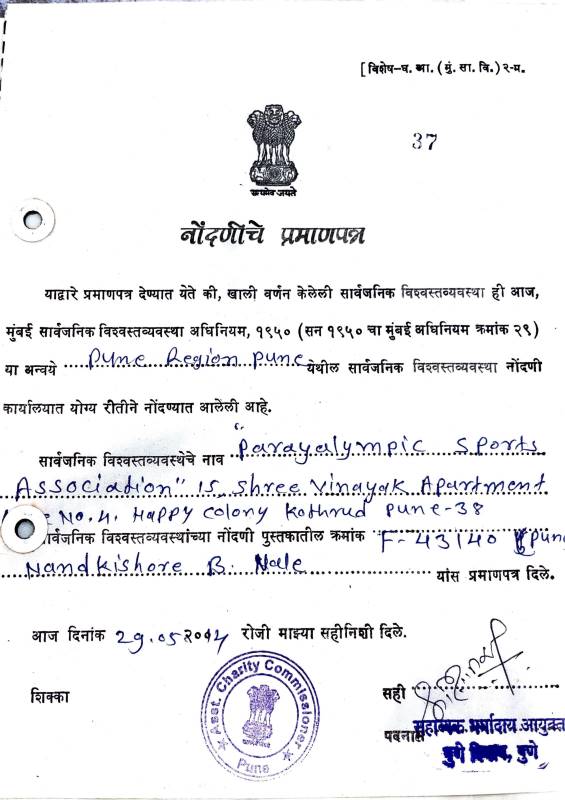 [विशेष-घ. आ. (मुं. सा. वि.) २-म.
37
सत्यमेव जयते
नोंदणीचे प्रमाणपत्र
याद्वारे प्रमाणपत्र देण्यात येते की, खाली वर्णन केलेली सार्वजनिक विश्वस्तव्यवस्था ही आज,
मुंबई सार्वजनिक विश्वस्तव्यवस्था अधिनियम, १९५० (सन १९५० चा मुंबई अधिनियम क्रमांक २९)
या अन्वये Pune Region Pune येथील सार्वजनिक विश्वस्तव्यवस्था नोंदणी
कार्यालयात योग्य रीतीने नोंदण्यात आलेली आहे.
सार्वजनिक विश्वस्तव्यवस्थेचे नाव "Parayalympic Sports
Association" 15, Shree Vinayak Apartment
No. 4. Happy Colony Kothrud Pune-38
सार्वजनिक विश्वस्तव्यवस्थांच्या नोंदणी पुस्तकातील क्रमांक F-43140 Pune
Nandkishore B. Nale यांस प्रमाणपत्र दिले.
आज दिनांक 29.05.2014 रोजी माझ्या सहीनिशी दिले.
शिक्का
Asst. Charity Commissioner
Pune
सही
पदनाम सहाय्यक धर्मादाय आयुक्त
पुणे विभाग, पुणे